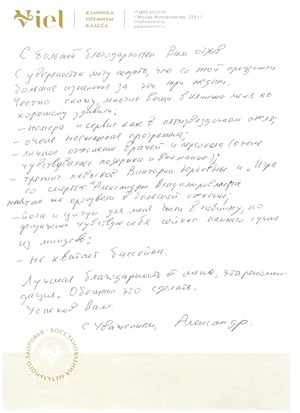 Viel
КЛИНИКА
ПРЕМИУМ
КЛАССА
С большой благодарностью Вам отзыв
С уверенностью могу сказать, что со мной произошли
большие изменения за эти три недели.
Честно скажу, многие вещи в клинике меня по
хорошему удивили:
- номера и сервис как в пятизвездочном отеле;
- очень насыщенная программа;
- личное отношение врачей и персонала (очень
чувствовалась поддержка и внимание);
- тренинг навыков Виктории Юрьевны и "Игра
со смертью" Александра Владимировича
- йога и цигун для меня были в новинку, но
физически чувствую себя сейчас намного лучше
- Не хватает бассейна.
Лучшая благодарность от меня, это рекомен-
дация. Обещаю это сделать.
Успехов Вам.
С Уважением, Александр.
ЗДОРОВЬЯ • ВОССТАНОВЛЕНИЯ МЕНТАЛЬНОГО